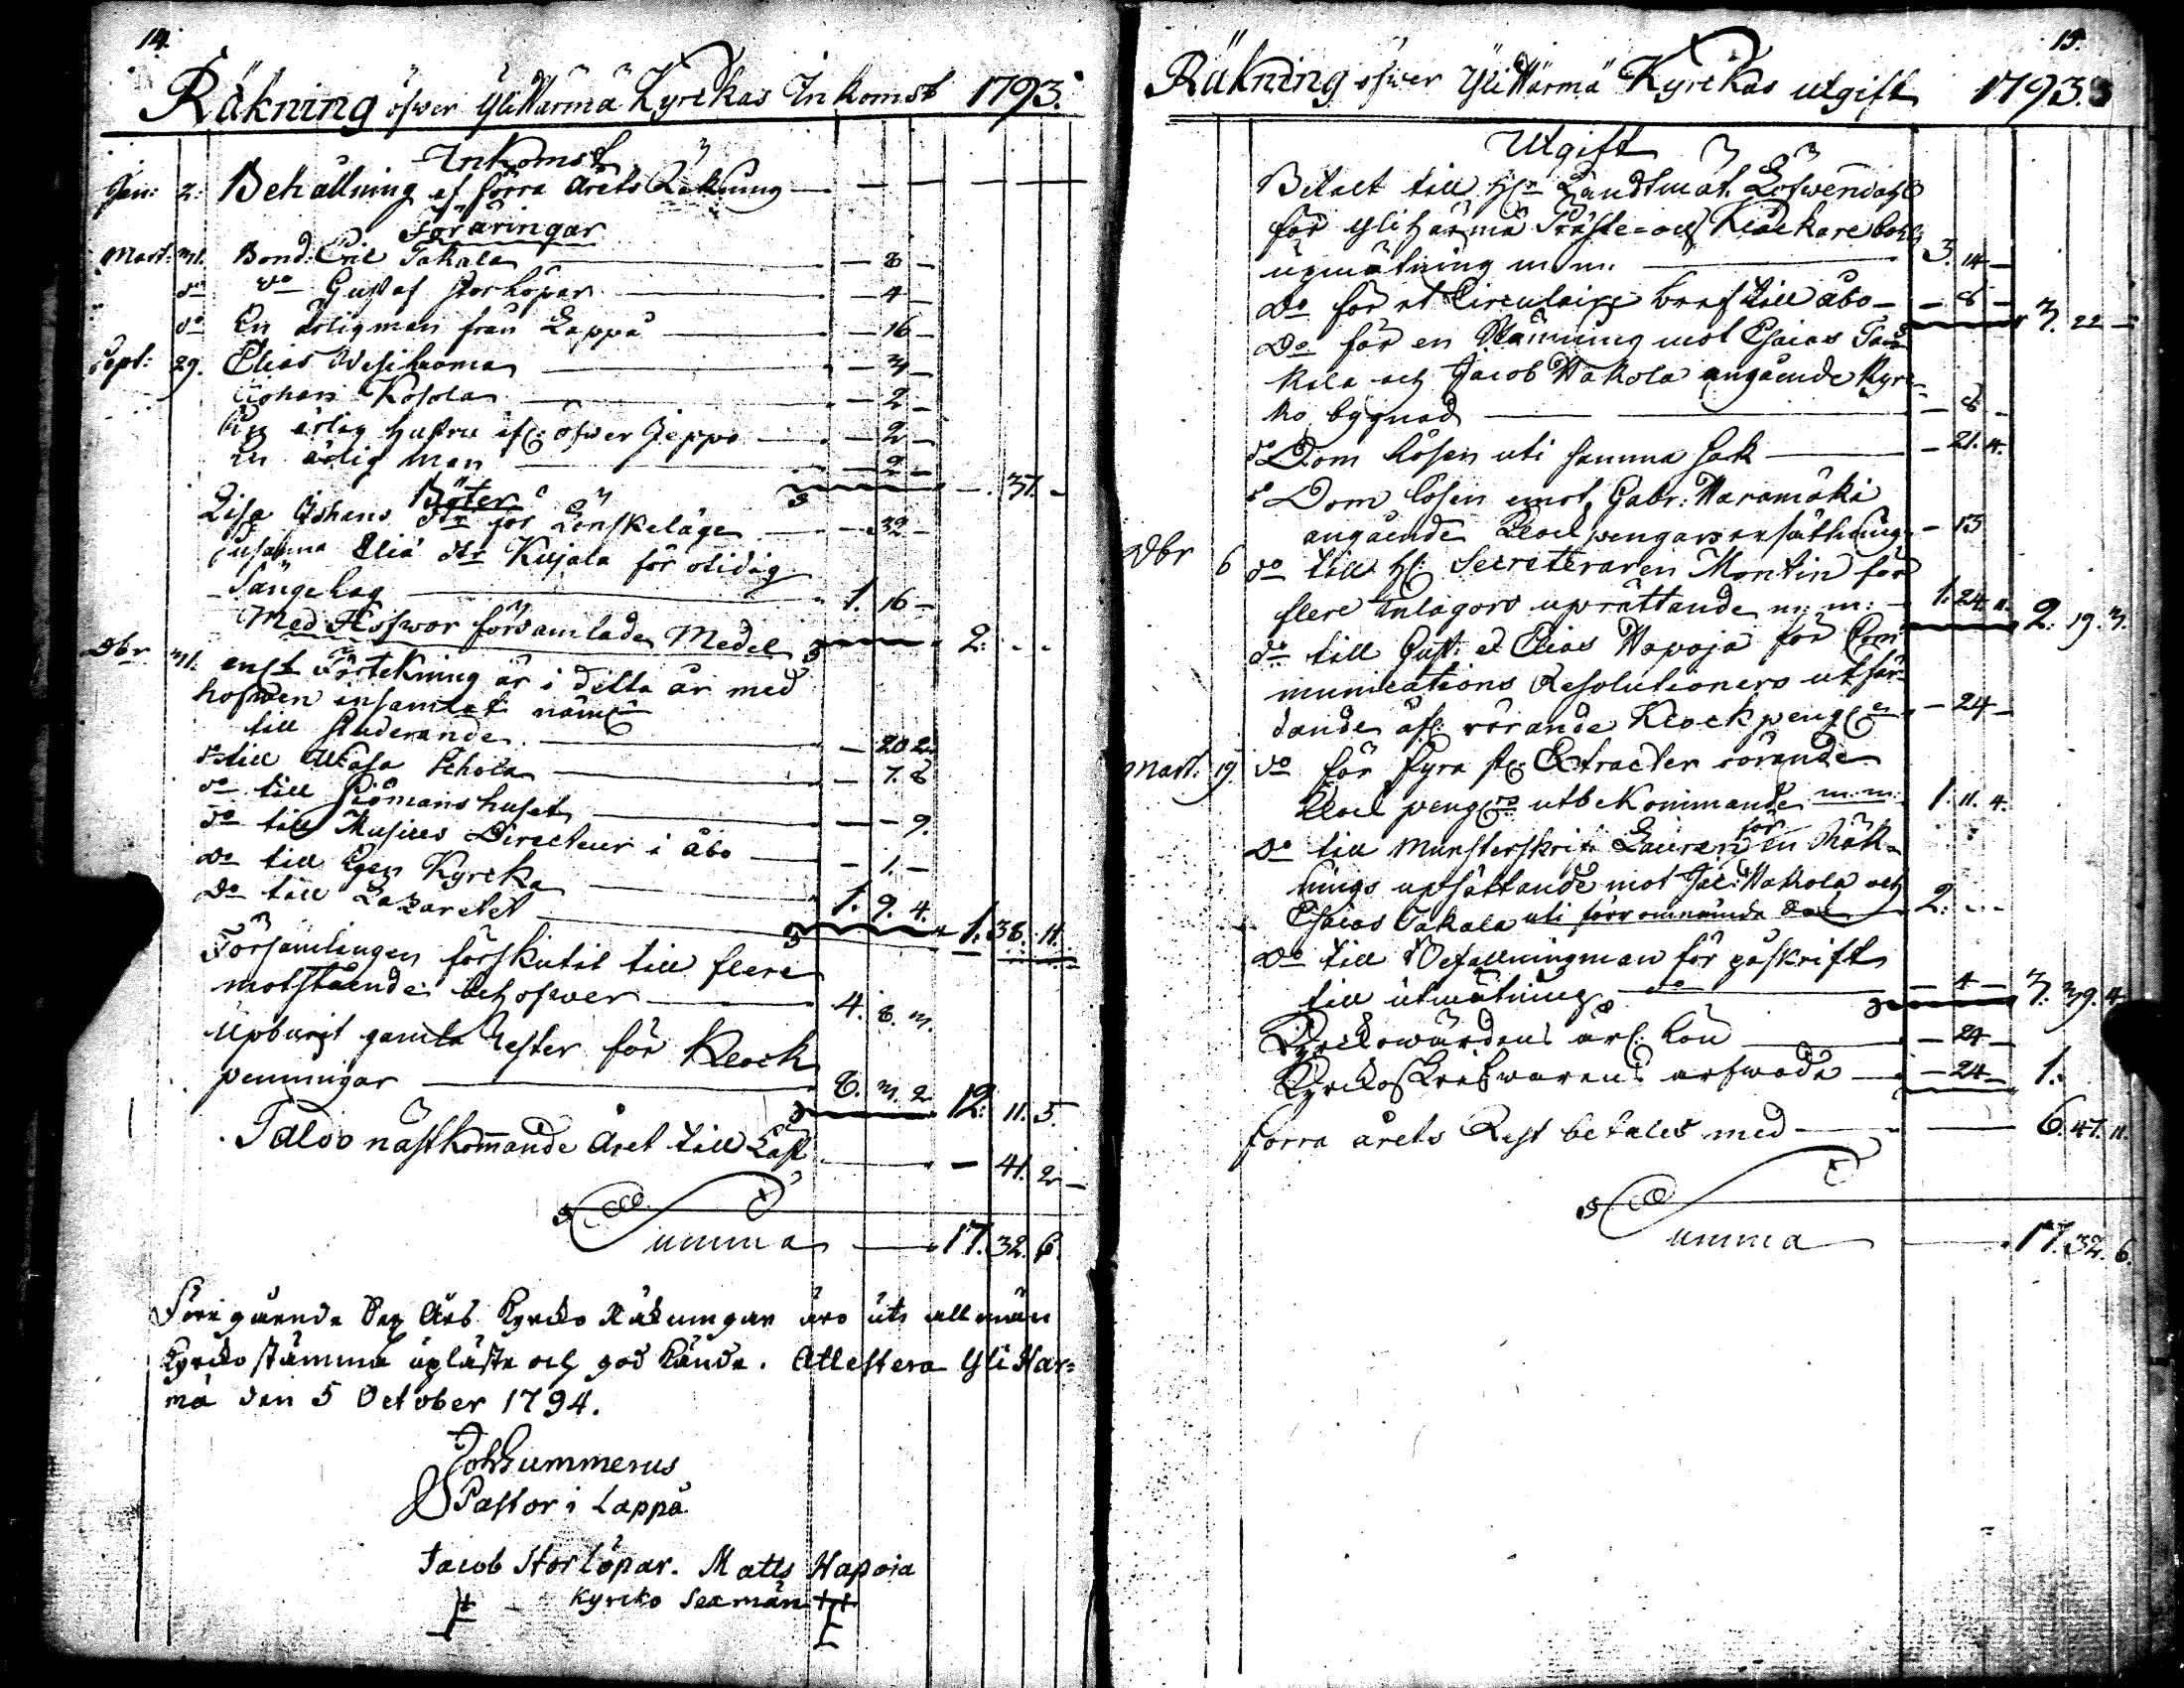 14.
Räkning öfver Yli Härmä Kyrckas Inkomst 1793.
Inkomst
Jan: 2: Behållning af förra Årets Räkning — — — — —
Föräringar
Mart: 31. Bond: Eric Takala — 8 —
do do Gustaf Storlöpar — 4 —
do En ärlig man från Lappå — 16 —
Sept: 29. Elias Wesiluoma — 3 —
Johan Kosola — 2 —
En ärlig hustru öfver Jeppo — 2 —
En ärlig man — 2 —
— 37. —
Böter
Lisa Johans dtr för Lönskeläge — 32 —
Susanna Eliæ dtr Kujala för otidig
Sängelag 1. 16 —
2. - -
Med Håfwor församlade Medel
Xbr 31. enst Förtekning är i detta år med
hofwen insamlat näml:n
till studerande — 20 2
do till Wasa Schola — 7. 8
do till Siömanshuset — — 9.
do till Musices Directeur i Åbo — 1. —
do till Egen Kyrcka
do till Lazarettet 1. 9. 4.
1. 38. 11.
Församlingen förskutit till flere
motstående behofwer 4. 8. 3.
Upburit gamla Rester för Klock
penningar 8. 3. 2
12. 11. 5.
Tages nästkommande Året till Last — 41. 2 —
Summa 17. 32. 6.
Föregående Sex Års Kyrcko Räkningar äro uti allmän
Kyrckostämma upläste och godkände. Attestera Yli Här=
mä den 5 October 1794.
Joh Gummerus
Pastor i Lappå
Jacob Storlöpar. Matts Hapoja
Kyrcko Sexmän
15.
Räkning öfver Yli Härmä Kyrckas utgift 1793.
Utgift
Betalt till H:r Landtmät. Löfwendahl
för Yli Härmä Präste- och Klockarebohls
upmätning m.m. 3. 14 —
do för et Circulaire bref till Åbo — — 8 —
3. 22 —
do för en Stämning mot Esaias Ta
kala och Jacob Hakola angående Kyr-
ko bygnad — 8 —
do Dom lösen uti samma sak — 21. 4.
do Dom lösen emot Gabr: Haramäki
angående Klockpengars ersättning — 13
Xbr 6 do till H: Secreteraren Montin för
flere Inlagors uprättande m: m: 1. 24. 11.
2. 19. 3.
do till Gust: et Elias Hapoja för Com
munications Resolutioners utfär-
dande rörande Klockpeng:r — 24 —
Mart: 19. do för fyra st: Extracter rörande
Klock peng:rs utbekommande m.m. 1. 11. 4.
do till Mönsterskrif: Lauren för en Räk-
nings upsättande mot Jac: Hakola och
Esaias Takala uti förr omnämnda Sak 2. - -
do till Befallningsman för påskrift
till utmätning — 4 —
3. 39. 4
Kyrckowärdens årl: Lön — 24 —
Kyrckoskrifwarens arfwode — 24 — 1.
Förra årets Rest betales med 6. 47. 11.
Summa 17. 32. 6.